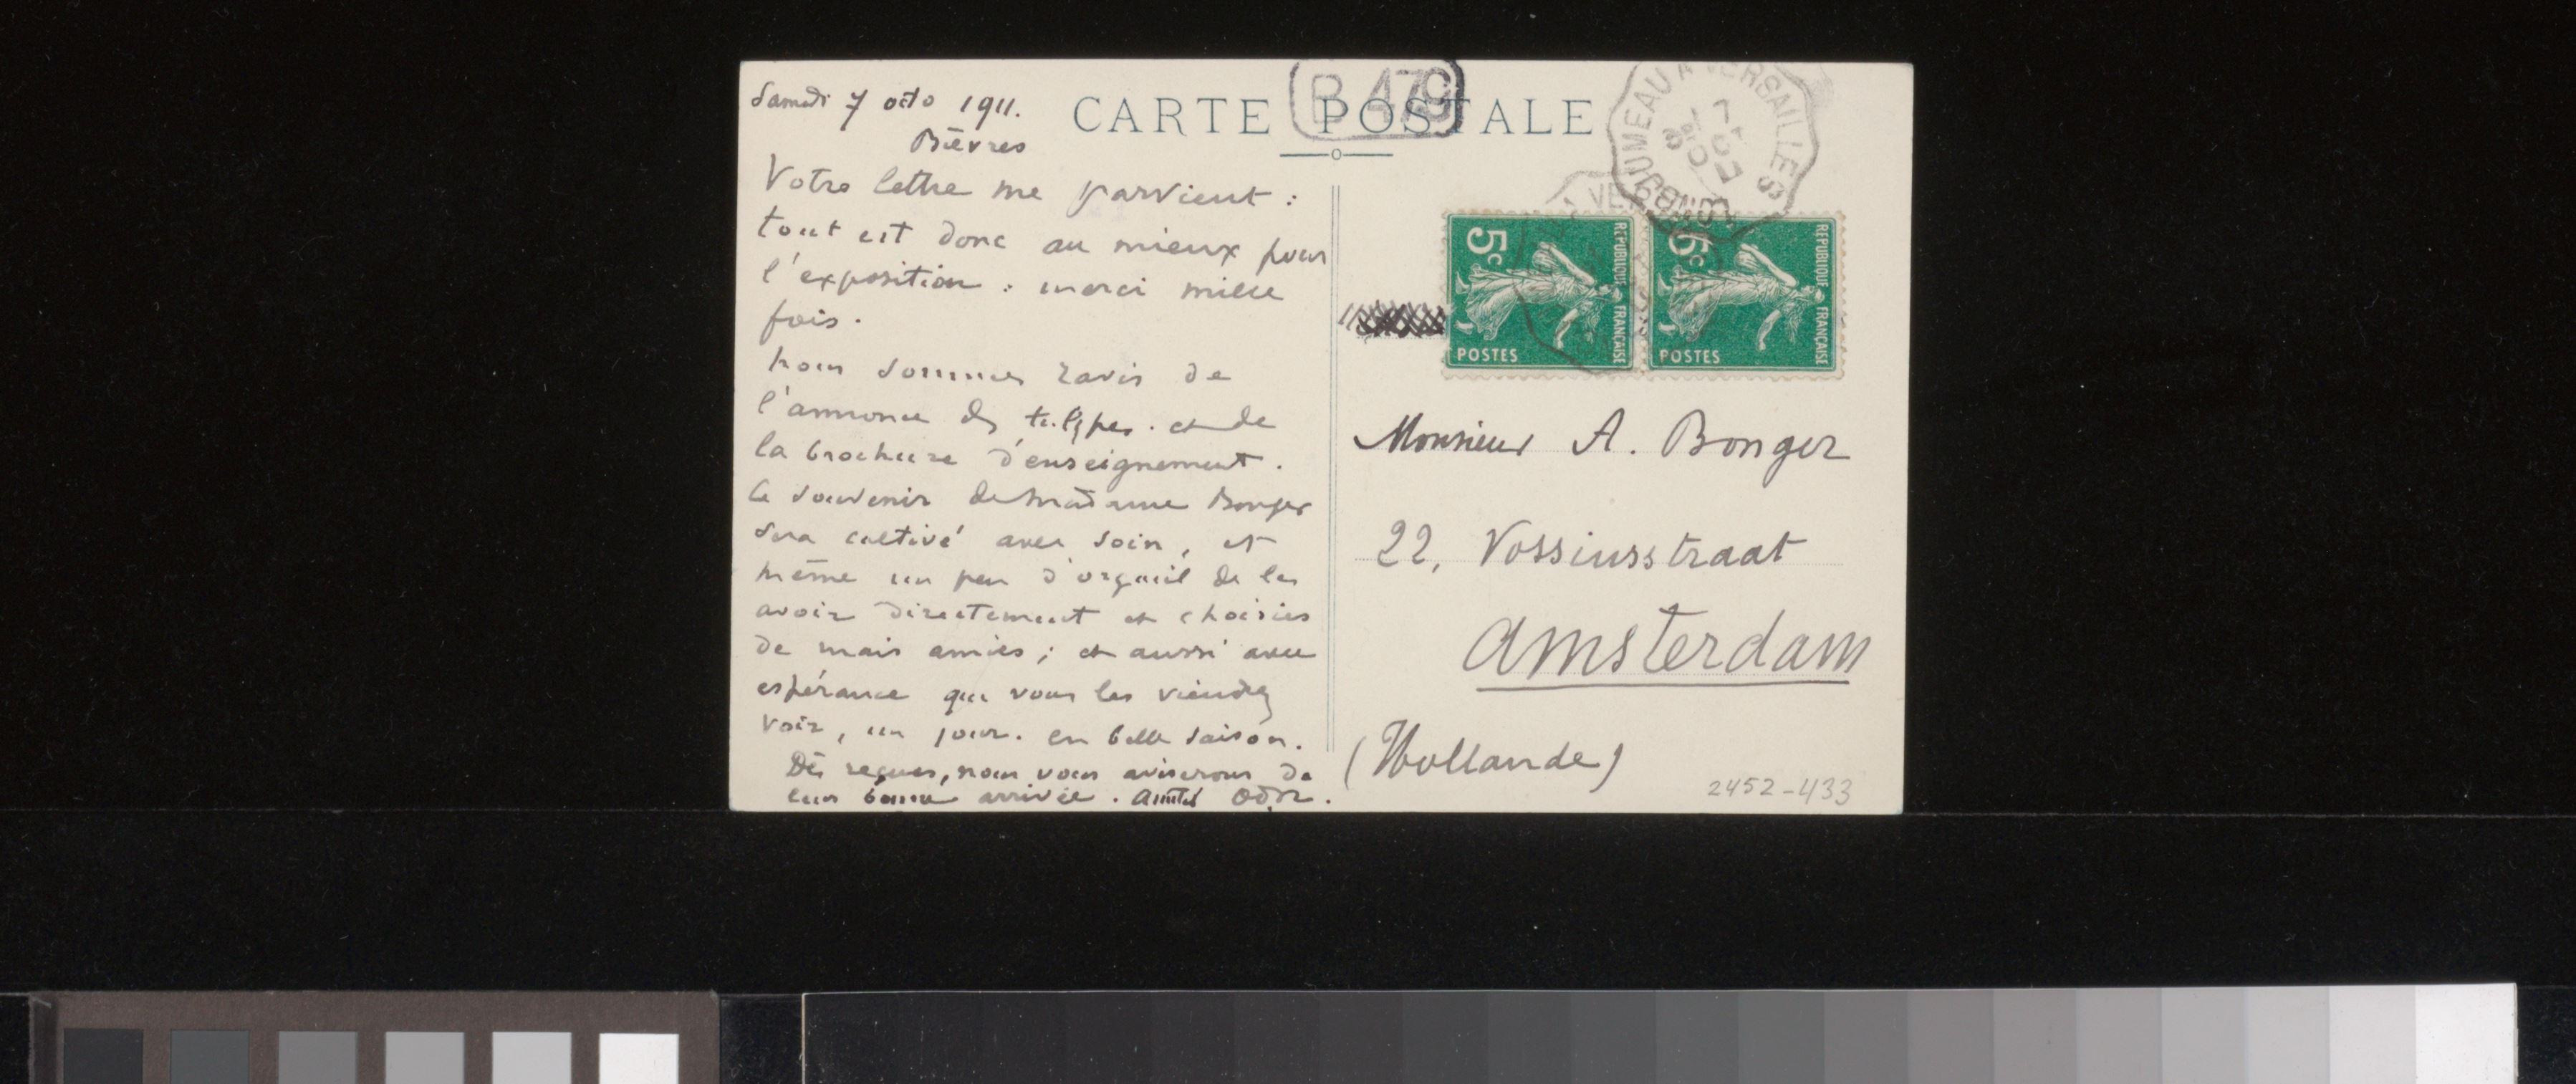 Samedi 7 octo 1911.
Bièvres
Votre lettre me parvient :
tout est donc au mieux pour
l'exposition : merci mille
fois.
nous sommes ravis de
l'annonce des tulipes. et de
la brochure d'enseignement.
Ce souvenir de Madame Bonger
sera cultivé avec soin, et
même un peu d'orgueil de les
avoir directement et choisies
de mais amies ; et aussi avec
espérance que vous les viendrez
voir, un jour. en belle saison.
Dès reçues, nous vous aviserons de
leur bonne arrivée. amitiés
CARTE POSTALE
B 479
LONJUMEAU A VERSAILLES
VERS
5c
REPUBLIQUE FRANÇAISE
POSTES
5c
REPUBLIQUE FRANÇAISE
POSTES
Monsieur A. Bonger
22, Vossiusstraat
Amsterdam
(Hollande)
2452-433